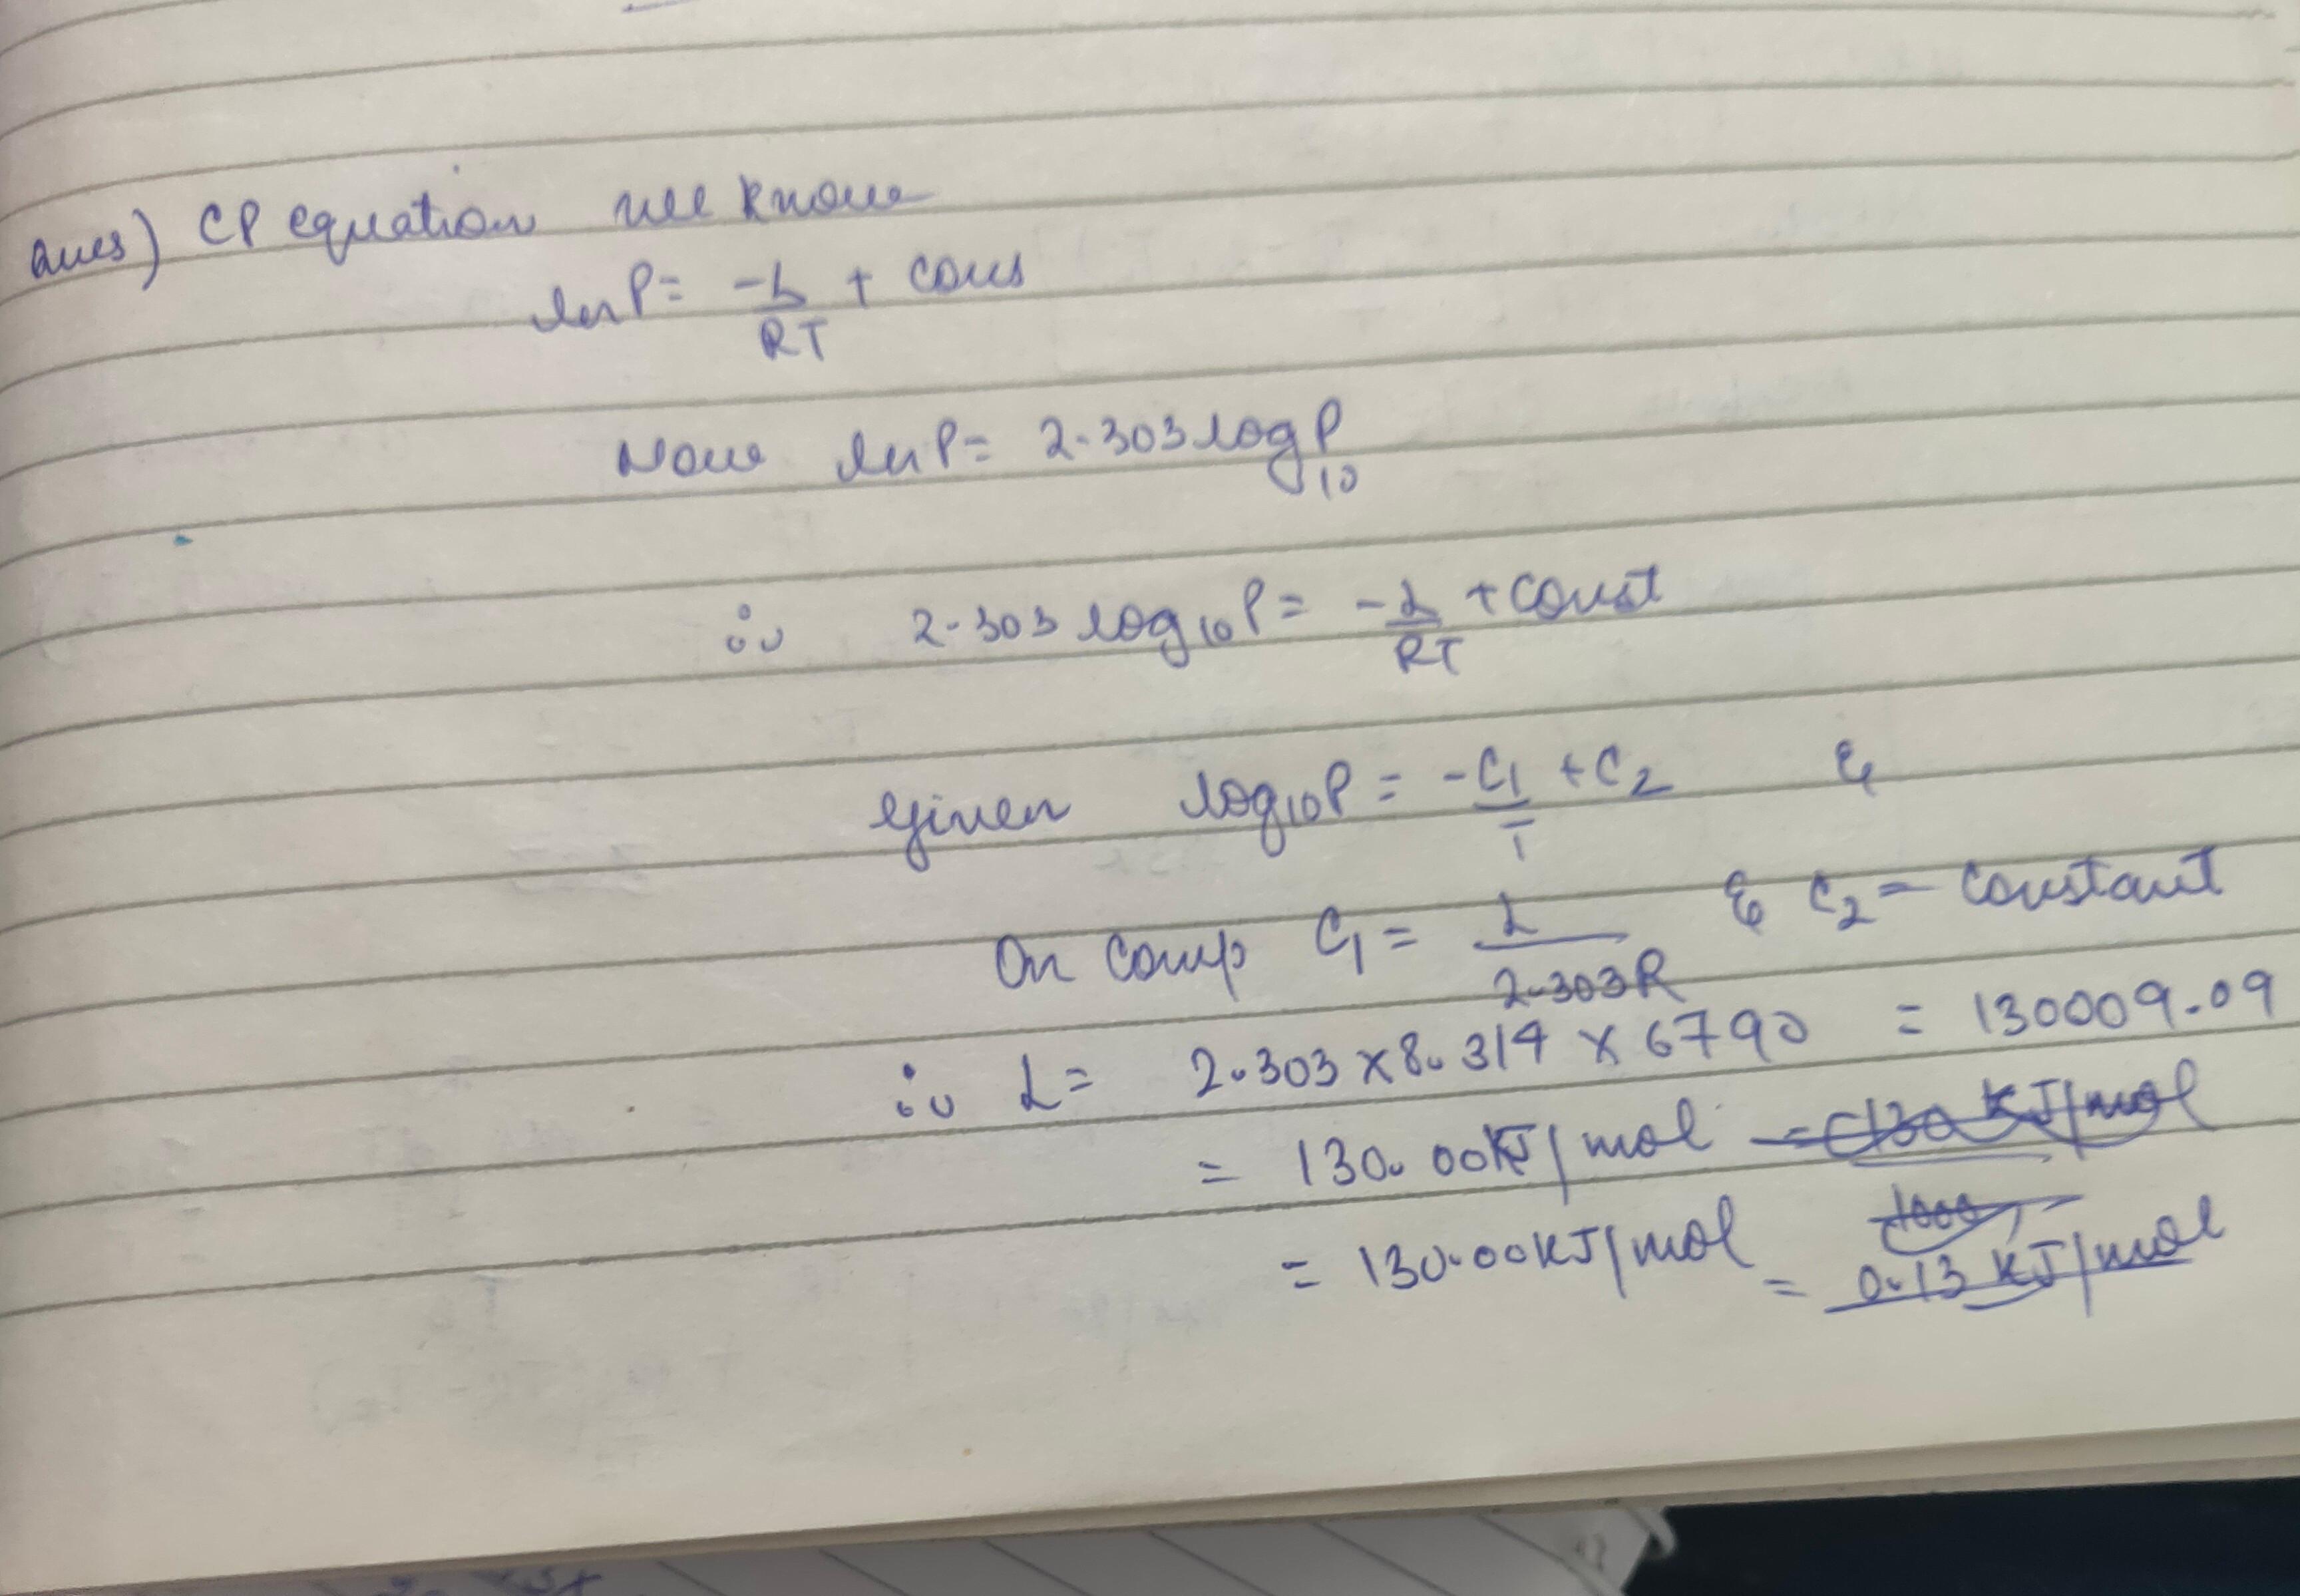 Ans) CP equation we know
ln P = -L/RT + cons
Now ln P = 2.303 log P 10
∴ 2.303 log₁₀ P = -L/RT + const
Given log₁₀ P = -C₁/T + C₂ &
On comp C₁ = L/2.303R & C₂ = constant
∴ L = 2.303 × 8.314 × 6790 = 130009.09
= 130.00 kJ/mol = 130 KJ/mol
1000
= 130.00 KJ/mol = 0.13 KJ/mol